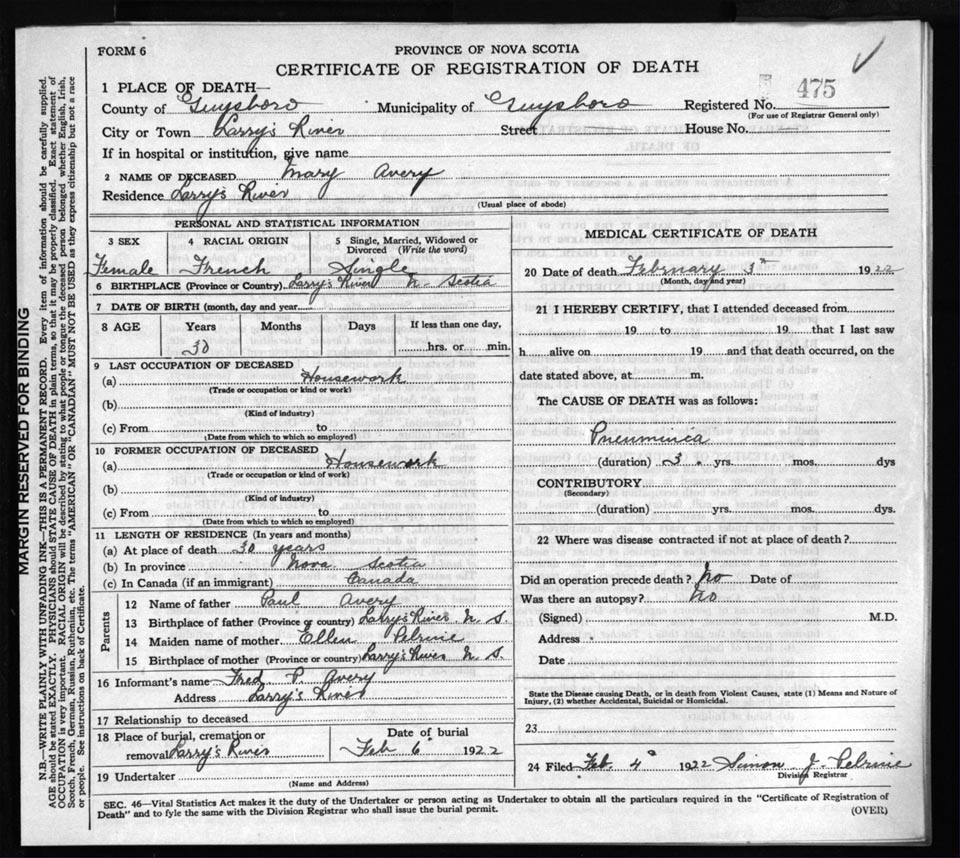 FORM 6
PROVINCE OF NOVA SCOTIA
CERTIFICATE OF REGISTRATION OF DEATH
1 PLACE OF DEATH—
County of Guysboro Municipality of Guysboro Registered No. 475
(For use of Registrar General only)
City or Town Larry's River Street House No.
If in hospital or institution, give name
2 NAME OF DECEASED Mary Avery
Residence Larry's River
(Usual place of abode)
PERSONAL AND STATISTICAL INFORMATION
3 SEX 4 RACIAL ORIGIN 5 Single, Married, Widowed or Divorced (Write the word)
Female French Single
6 BIRTHPLACE (Province or Country) Larry's River N. Scotia
7 DATE OF BIRTH (month, day and year)
8 AGE Years Months Days If less than one day,
30 hrs. or min.
9 LAST OCCUPATION OF DECEASED
(a) Housework
(Trade or occupation or kind of work)
(b)
(Kind of industry)
(c) From to
(Date from which to which so employed)
10 FORMER OCCUPATION OF DECEASED
(a) Housework
(Trade or occupation or kind of work)
(b)
(Kind of industry)
(c) From to
(Date from which to which so employed)
11 LENGTH OF RESIDENCE (In years and months)
(a) At place of death 30 years
(b) In province Nova Scotia
(c) In Canada (if an immigrant) Canada
Parents
12 Name of father Paul Avery
13 Birthplace of father (Province or country) Larry's River N. S.
14 Maiden name of mother Ellen Pelrine
15 Birthplace of mother (Province or country) Larry's River N. S.
16 Informant's name Fred P. Avery
Address Larry's River
17 Relationship to deceased
18 Place of burial, cremation or removal Larry's River
Date of burial
Feb 6 1922
19 Undertaker
(Name and Address)
MEDICAL CERTIFICATE OF DEATH
20 Date of death February 3d 1922
(Month, day and year)
21 I HEREBY CERTIFY, that I attended deceased from
19 to 19 that I last saw
h alive on 19 and that death occurred, on the
date stated above, at m.
The CAUSE OF DEATH was as follows:
Pneuminica
(duration) 3. yrs. mos. dys
CONTRIBUTORY
(Secondary)
(duration) yrs. mos. dys.
22 Where was disease contracted if not at place of death?
Did an operation precede death? No Date of
Was there an autopsy? No
(Signed) M.D.
Address
Date
State the Disease causing Death, or in death from Violent Causes, state (1) Means and Nature of
Injury, (2) whether Accidental, Suicidal or Homicidal.
23
24 Filed Feb. 4th 1922 Simon J. Pelrine
Division Registrar
SEC. 46—Vital Statistics Act makes it the duty of the Undertaker or person acting as Undertaker to obtain all the particulars required in the "Certificate of Registration of
Death" and to fyle the same with the Division Registrar who shall issue the burial permit.
(OVER)
MARGIN RESERVED FOR BINDING
N.B.—WRITE PLAINLY WITH UNFADING INK—THIS IS A PERMANENT RECORD. Every item of information should be carefully supplied.
AGE should be stated EXACTLY. PHYSICIANS should STATE CAUSE OF DEATH in plain terms, so that it may be properly classified. Exact statement of
OCCUPATION is very important. RACIAL ORIGIN will be described by stating to what people or tongue the deceased person belonged whether English, Irish,
Scotch, French, German, Russian, Ruthenian, etc. The terms "AMERICAN" OR "CANADIAN" MUST NOT BE USED as they express citizenship but not a race
or people. See instructions on back of Certificate.